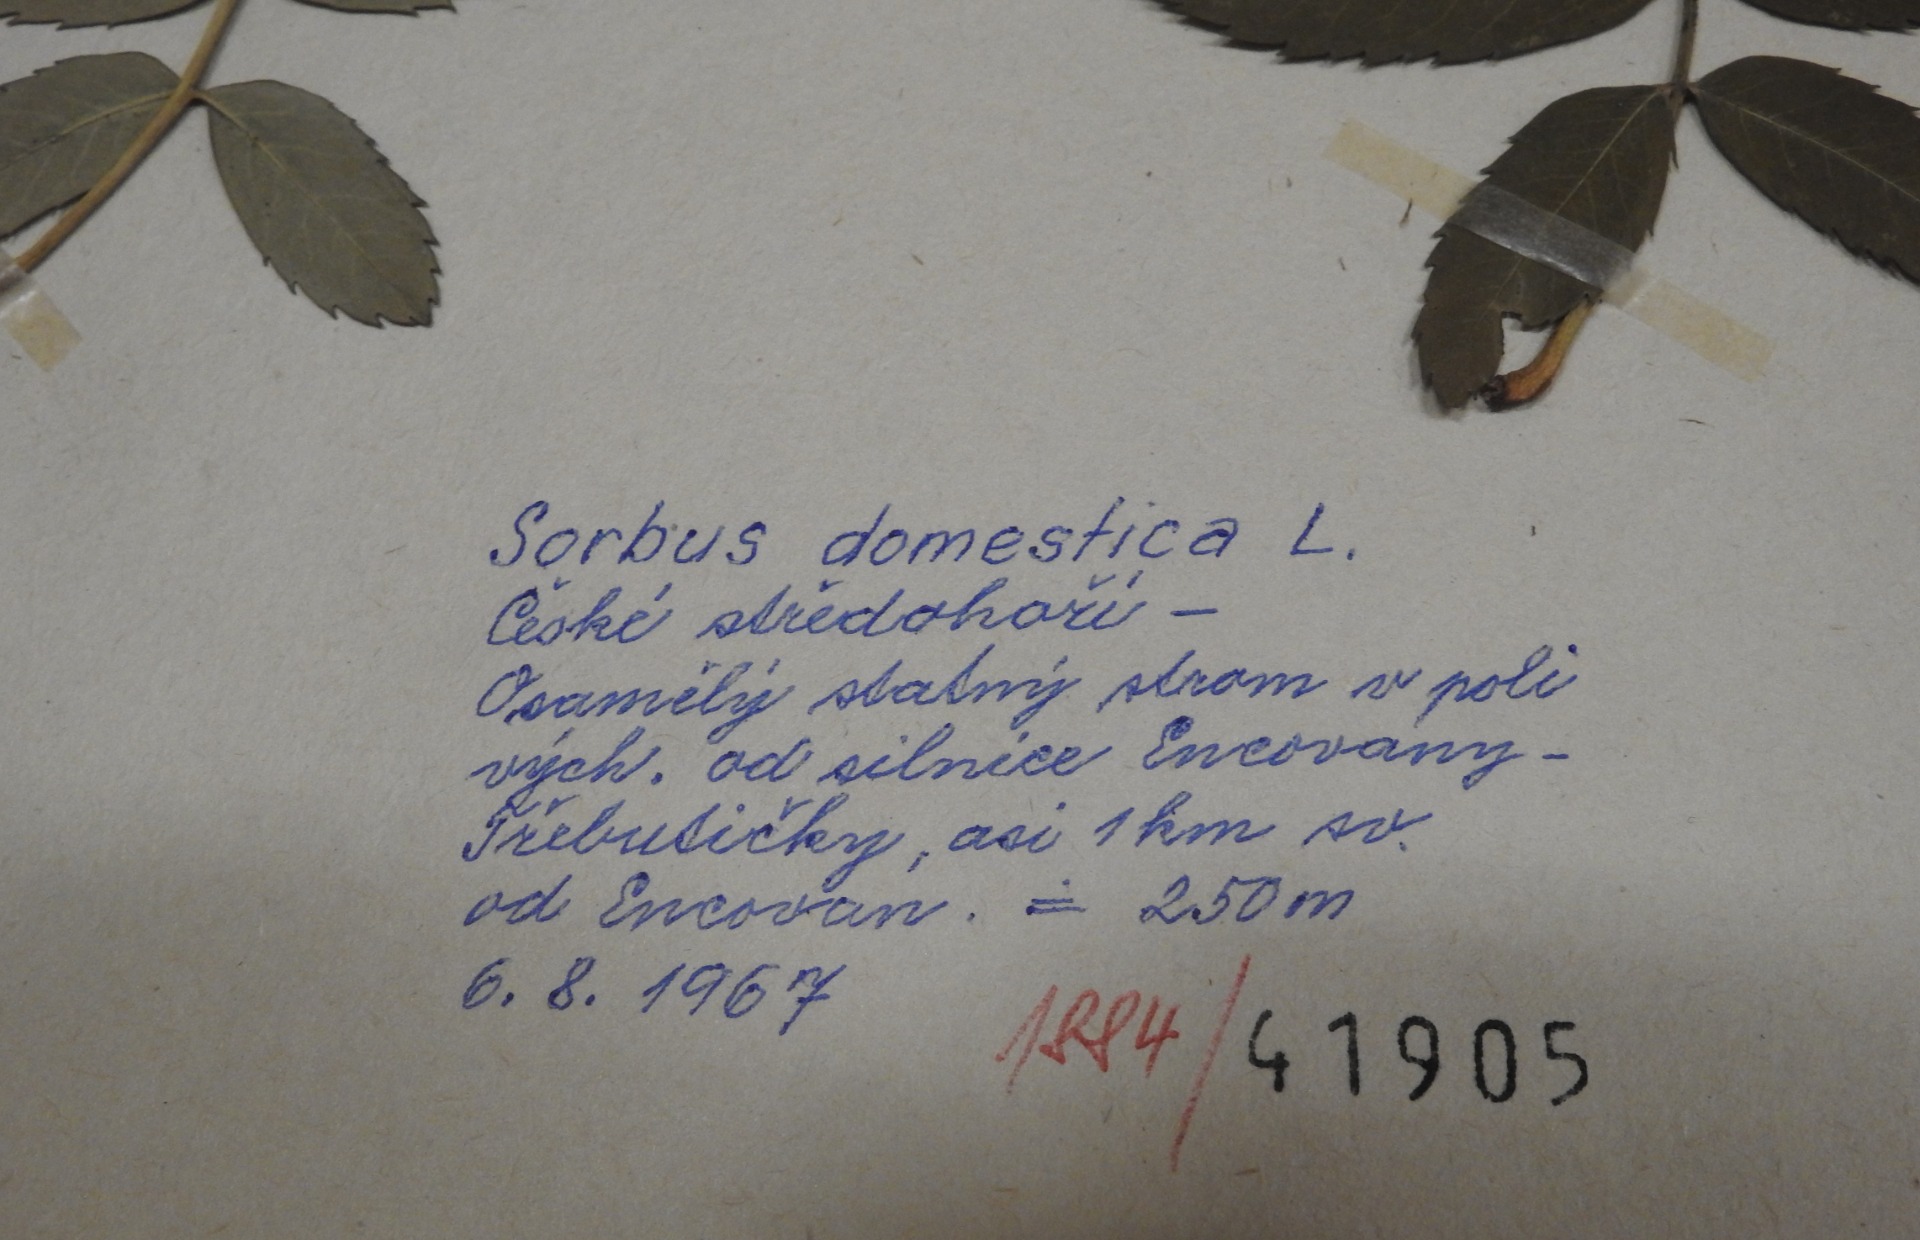 Sorbus domestica L.
České středohoří –
Osamělý statný strom v poli
vých. od silnice Encovany -
Třebutičky, asi 1 km sv.
od Encovan. ≐ 250 m
6. 8. 1967
1884/41905